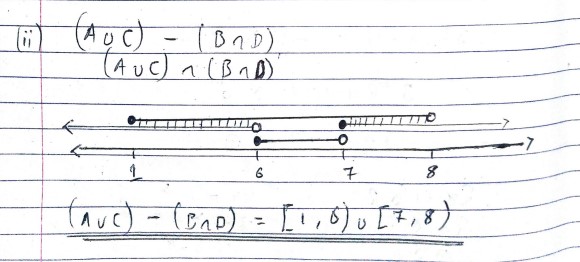 (ii) (A ∪ C) - (B ∩ D)
(A ∪ C) ∩ (B ∩ D)
1 6 7 8
(A ∪ C) - (B ∩ D) = [1, 6) ∪ [7, 8)